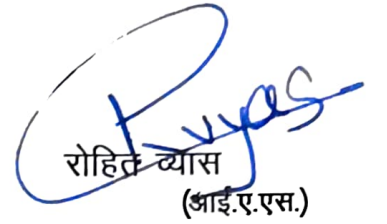 Rvyas
रोहित व्यास
(आई.ए.एस.)